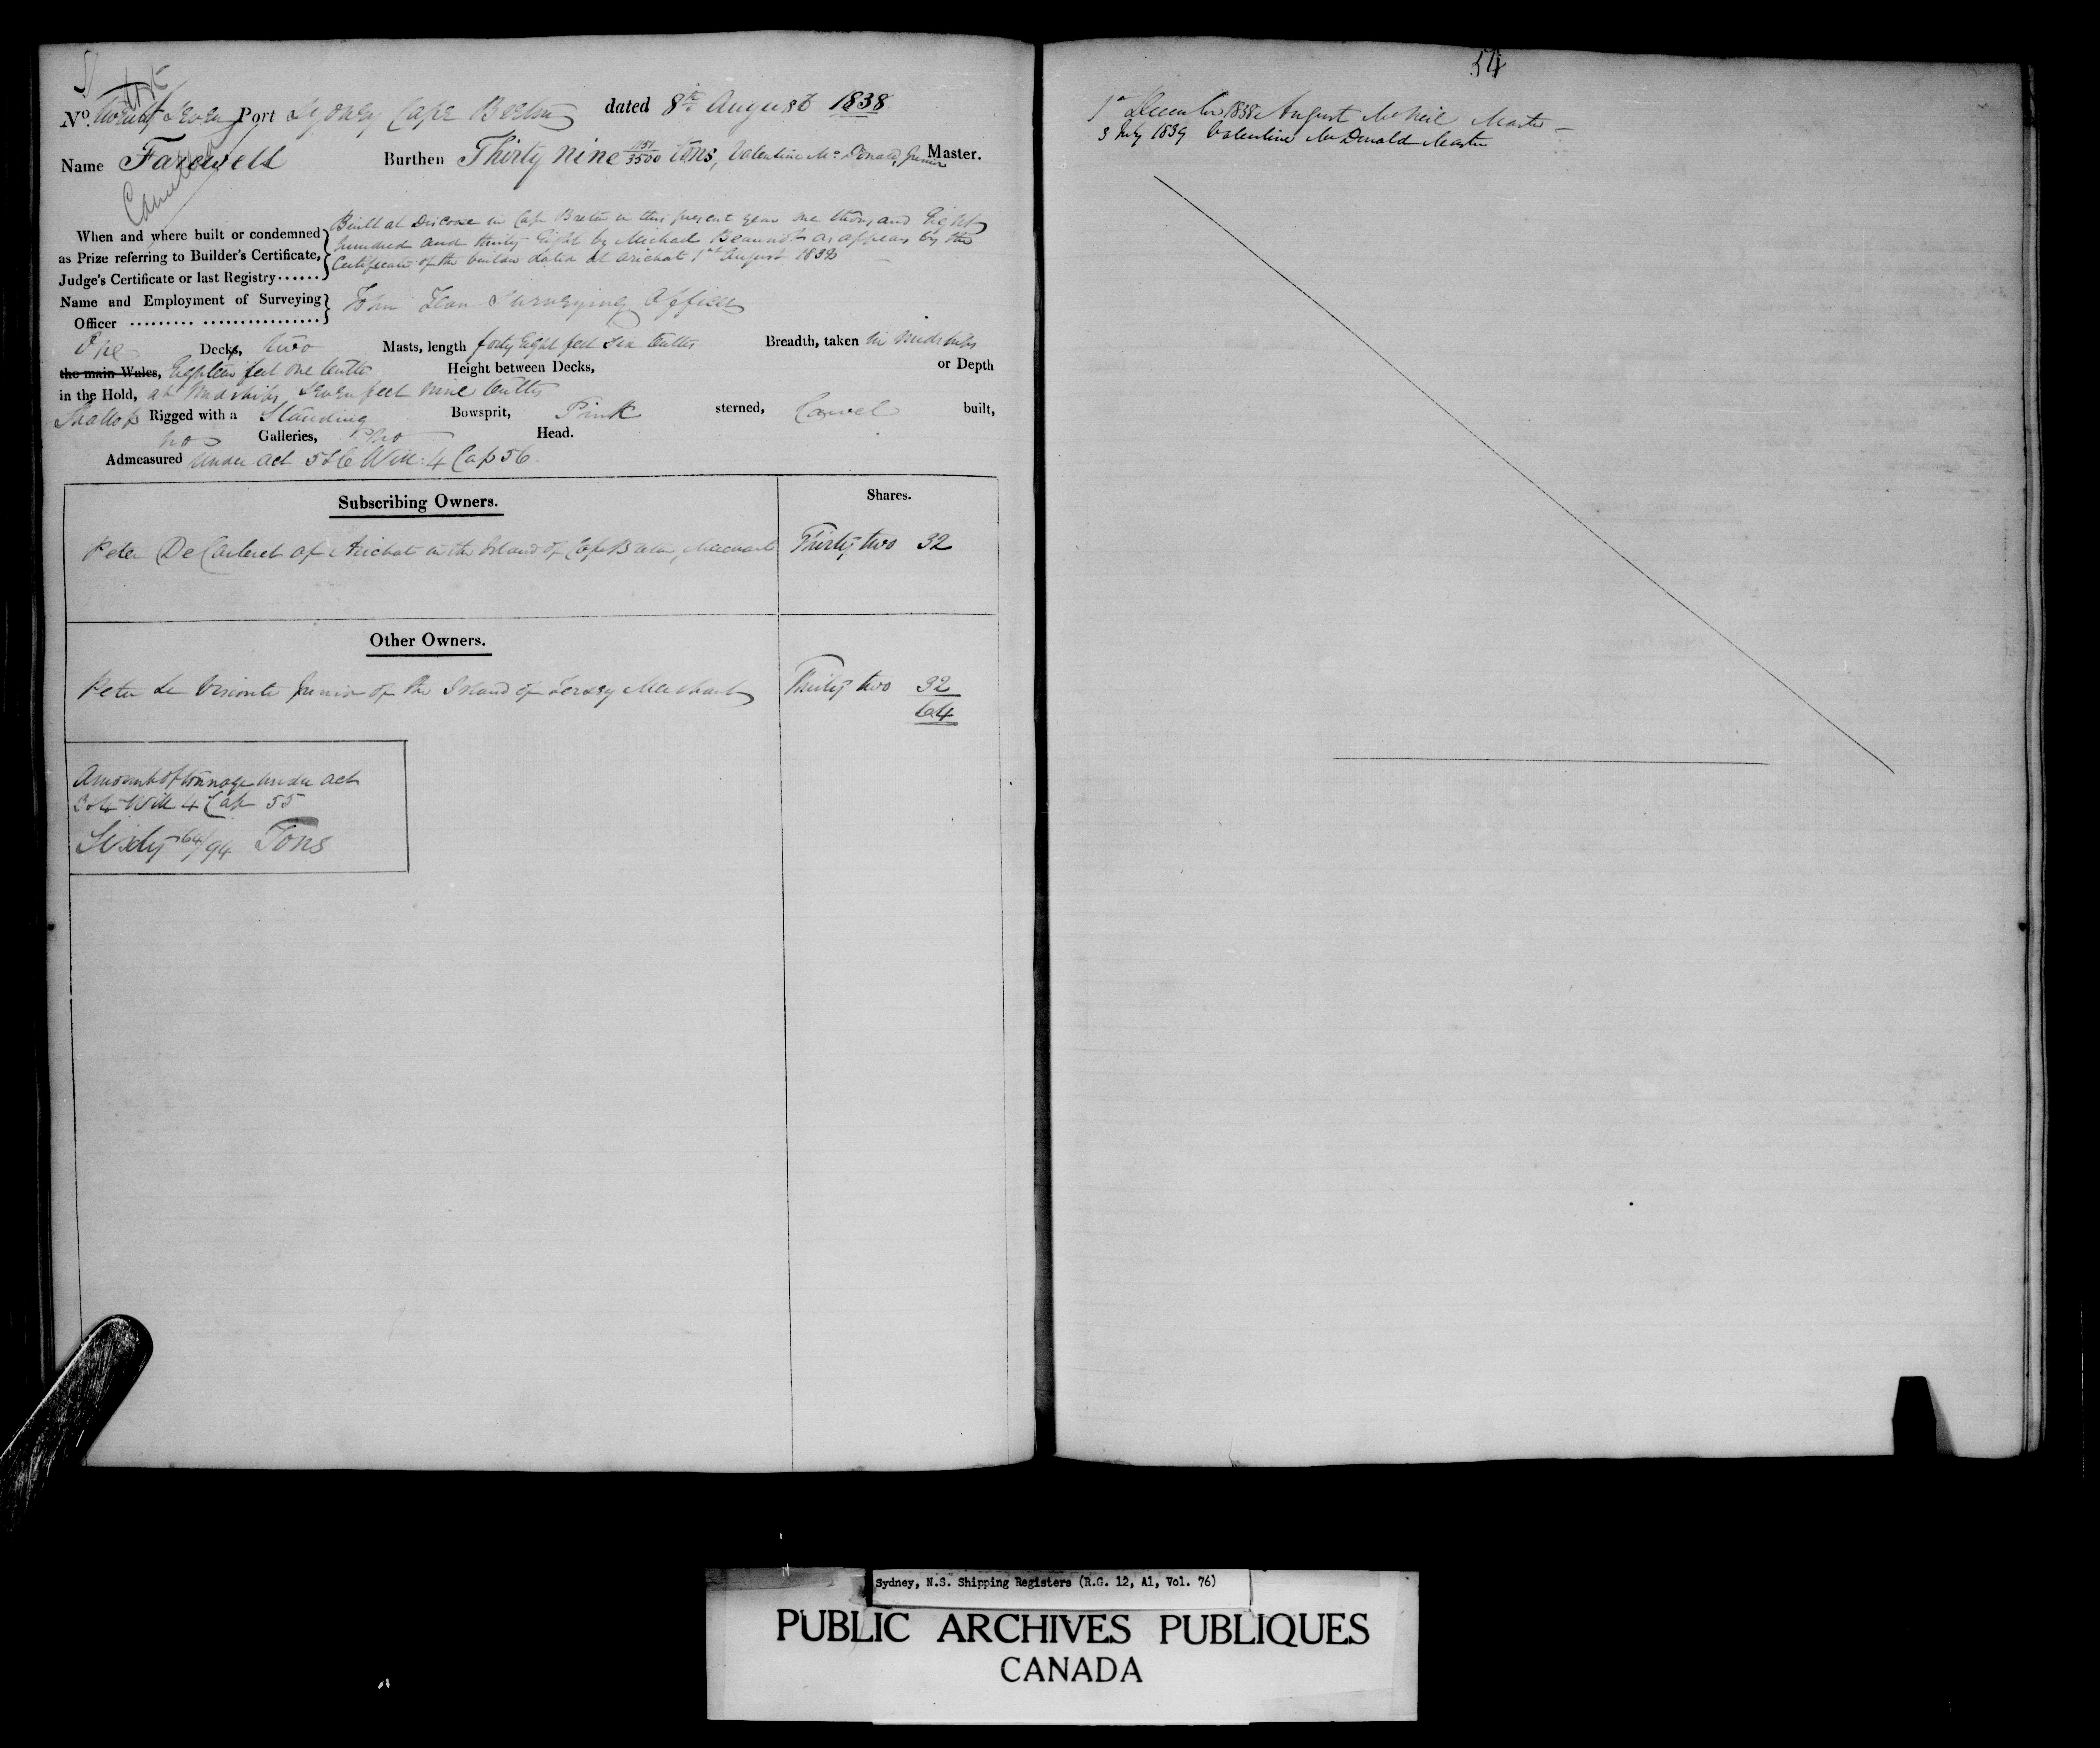 No. Twenty Seven Port Sydney Cape Breton dated 8th August 1838
Cancelled
Name Farewell Burthen Thirty nine /3500 Tons, Valentine Mc Donald, Junior Master.
When and where built or condemned as Prize referring to Builder's Certificate, Judge's Certificate or last Registry......
Built at Descouse in Cape Breton in this present year One thousand Eight
hundred and thirty Eight by Michael as appears by the
Certificate of the builder dated at Arichat 1st August 1838
Name and Employment of Surveying Officer ......... ................ John Jean Surveying Officer
One Decks, two Masts, length forty Eight feet Six tenths Breadth, taken in Midships
the main Wales, Eighteen feet one tenth Height between Decks, or Depth
in the Hold, at Midships Seven feet nine tenths
Shallop Rigged with a Standing Bowsprit, Pink sterned, Carvel built,
no Galleries, no Head.
Admeasured under Act 5 & 6 Will: 4 Cap 56.
Subscribing Owners. Shares.
Peter De Carteret of Arichat in the Island of Cape Breton, Merchant Thirty two 32
Other Owners.
Peter Le Visconte Junior of the Island of Jersey Merchant Thirty two 32
64
Amount of tonnage under act
3 & 4 Will 4 Cap 55
Sixty 64/94 Tons
54
1st December 1838 August McNeil Master
3 July 1839 Valentine McDonald Master
Sydney, N.S. Shipping Registers (R.G. 12, A1, Vol. 76)
PUBLIC ARCHIVES PUBLIQUES
CANADA